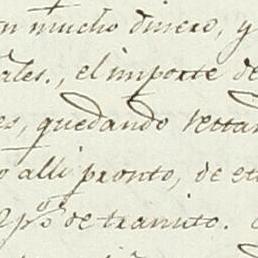 n mucho dinero, y
ales., el importe de
es, quedando
o alli pronto, de
de transito.